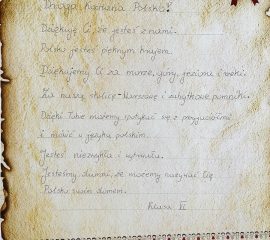 Droga Kochana Polsko!
Dziękuję Ci, że jesteś z nami.
Polsko jesteś pięknym krajem.
Dziękujemy Ci za morze, góry, jeziora i rzeki.
Za naszą stolicę - Warszawę i zabytkowe pomniki.
Dzięki Tobie możemy spotykać się z przyjaciółmi
i mówić w języku polskim.
Jesteś niezwykła i wytrwała.
Jesteśmy dumni, że możemy nazywać Cię
Polsko swoim domem.
klasa VI